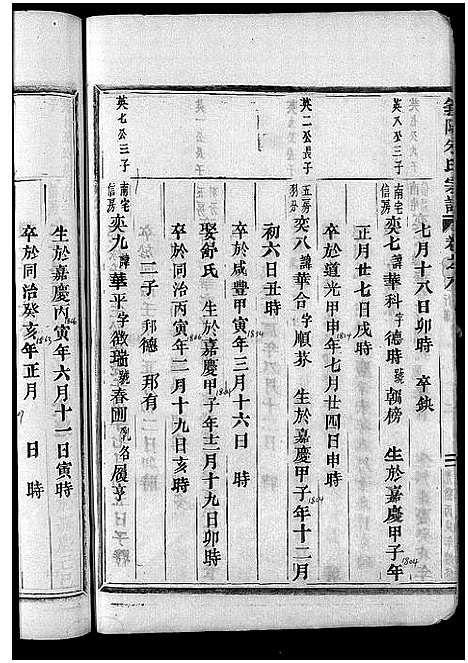 七月十八日卯時 卒缺
英八公三子 南宅信房 奕七 諱華科 字德時 號朝榜 生於嘉慶甲子年 1804
正月廿七日戌時
卒於道光甲申年七月廿四日申時
英二公長子 五房 奕八 諱華合 字順芬 生於嘉慶甲子年十二月 1804
初六日丑時
卒於咸豐甲寅年三月十六日 時
娶舒氏 生於嘉慶甲子年 月十九日卯時 1804
卒於同治丙寅年二月十九日亥時
二子 邦德 邦有
英七公三子 南宅信房 奕九 諱華平 字徵瑞 號春圃 乳名履亨
生於嘉慶丙寅年六月十一日寅時
卒於同治癸亥年正月 日 時 1863